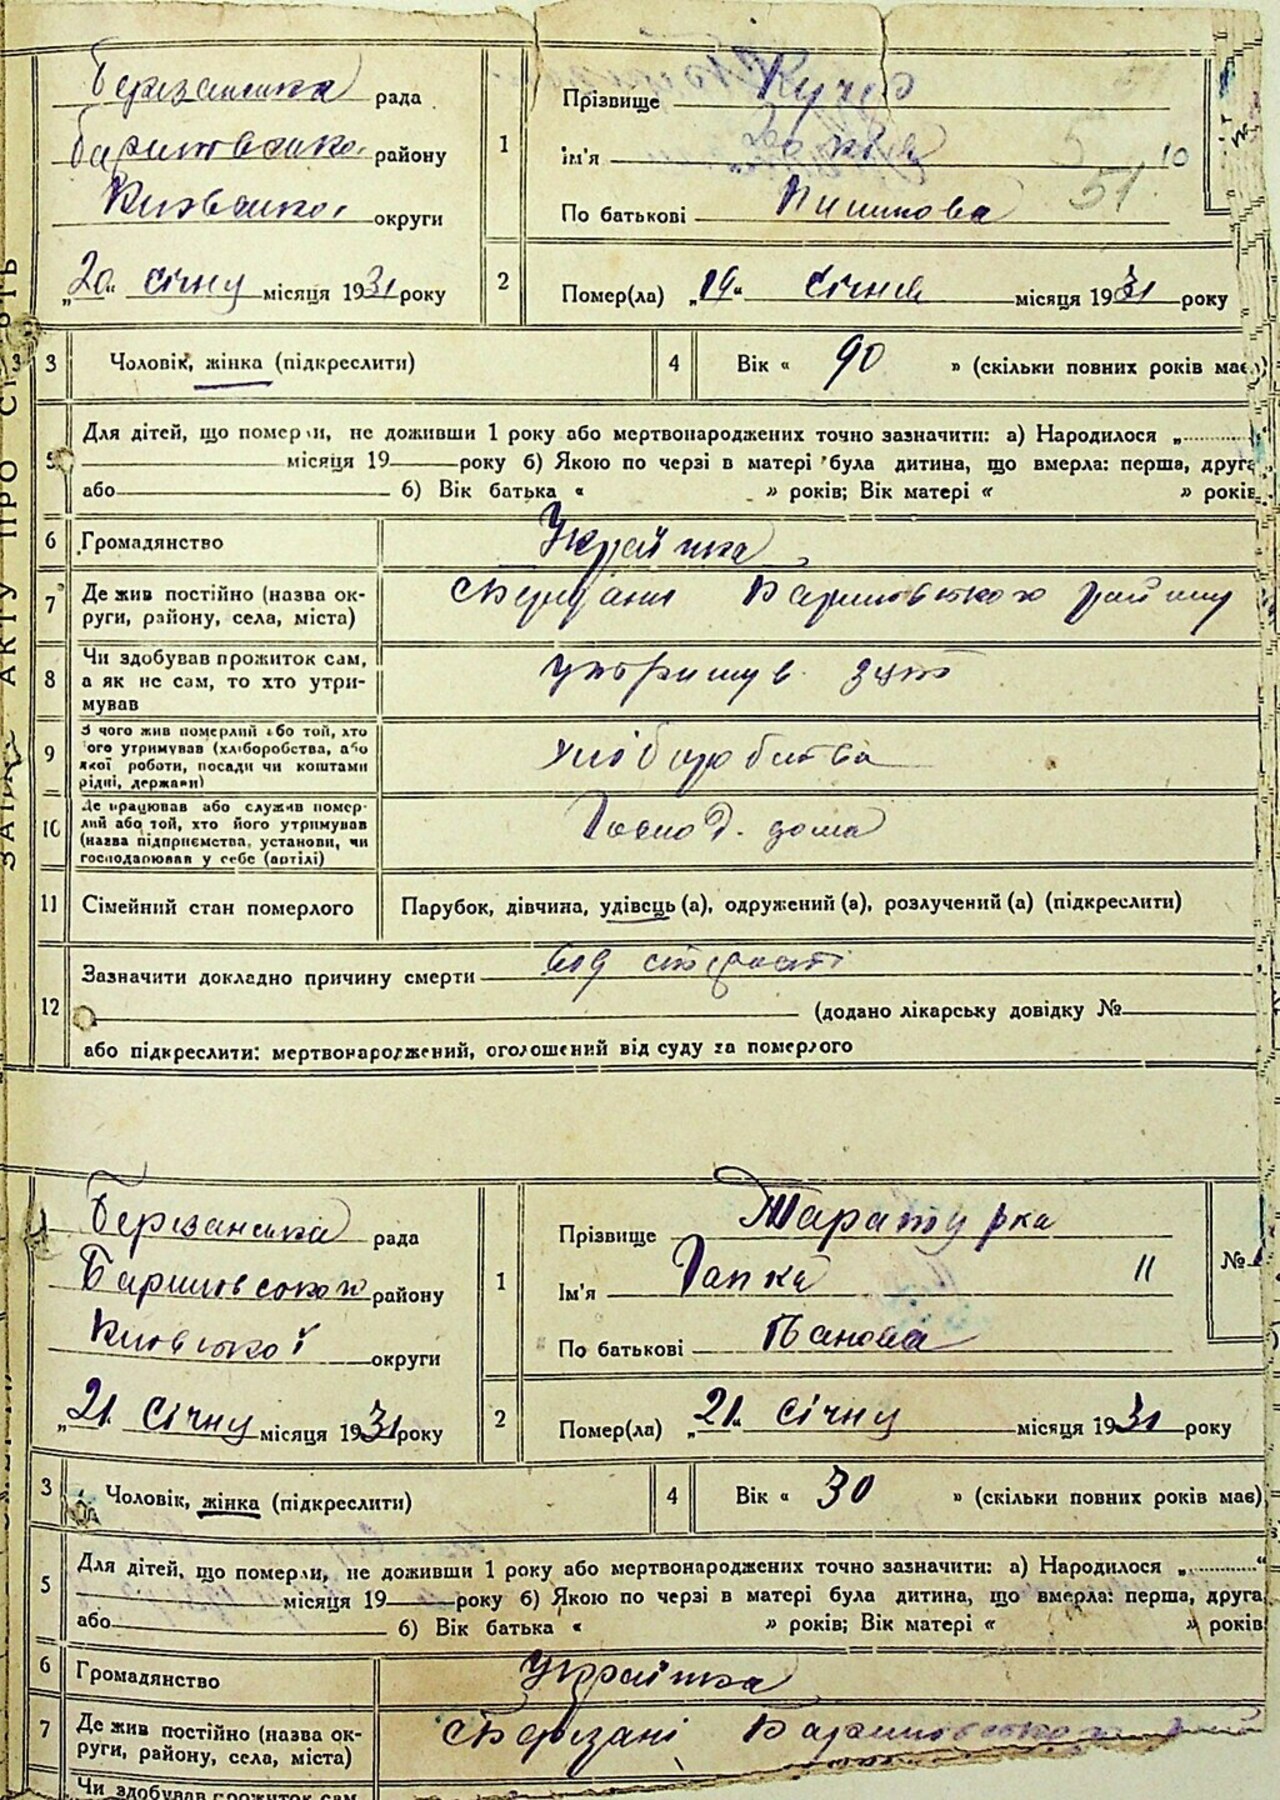 ЗАПИС АКТУ ПРО СМЕРТЬ
Березанська рада
Баришівсько району
Київсько округи
„20“ січну місяця 1931 року
1
Прізвище Кучер
Ім'я
10
По батькові 51
2
Помер(ла) „19“ січня місяця 1931 року
3
Чоловік, жінка (підкреслити)
4
Вік « 90 » (скільки повних років має)
5
Для дітей, що померли, не доживши 1 року або мертвонароджених точно зазначити: а) Народилося „
місяця 19 року б) Якою по черзі в матері була дитина, що вмерла: перша, друга
або б) Вік батька « » років; Вік матері « » років
6
Громадянство Українка
7
Де жив постійно (назва округи, району, села, міста)
с Березані Баришівського району
8
Чи здобував прожиток сам, а як не сам, то хто утримував
утримув. зять
9
З чого жив померлий або той, хто його утримував (хліборобства, або якої роботи, посади чи коштами рідні, держави)
хліборобства
10
Де працював або служив померлий або той, хто його утримував (назва підприємства, установи, чи господарював у себе (артілі)
Господ. дома
11
Сімейний стан померлого
Парубок, дівчина, удівець (а), одружений (а), розлучений (а) (підкреслити)
12
Зазначити докладно причину смерти од старості
(додано лікарську довідку №
або підкреслити: мертвонароджений, оголошений від суду за померлого
Березанська рада
Баришовського району
Київської округи
„21“ січну місяця 1931 року
1
Прізвище Таратурка
Ім'я Гапка 11
По батькові Іванова
№
2
Помер(ла) „21“ січну місяця 1931 року
3
Чоловік, жінка (підкреслити)
4
Вік « 30 » (скільки повних років має)
5
Для дітей, що померли, не доживши 1 року або мертвонароджених точно зазначити: а) Народилося „ “
місяця 19 року б) Якою по черзі в матері була дитина, що вмерла: перша, друга
або б) Вік батька « » років; Вік матері « » років
6
Громадянство Українка
7
Де жив постійно (назва округи, району, села, міста)
с Березані Баришовського
Чи здобував прожиток сам,